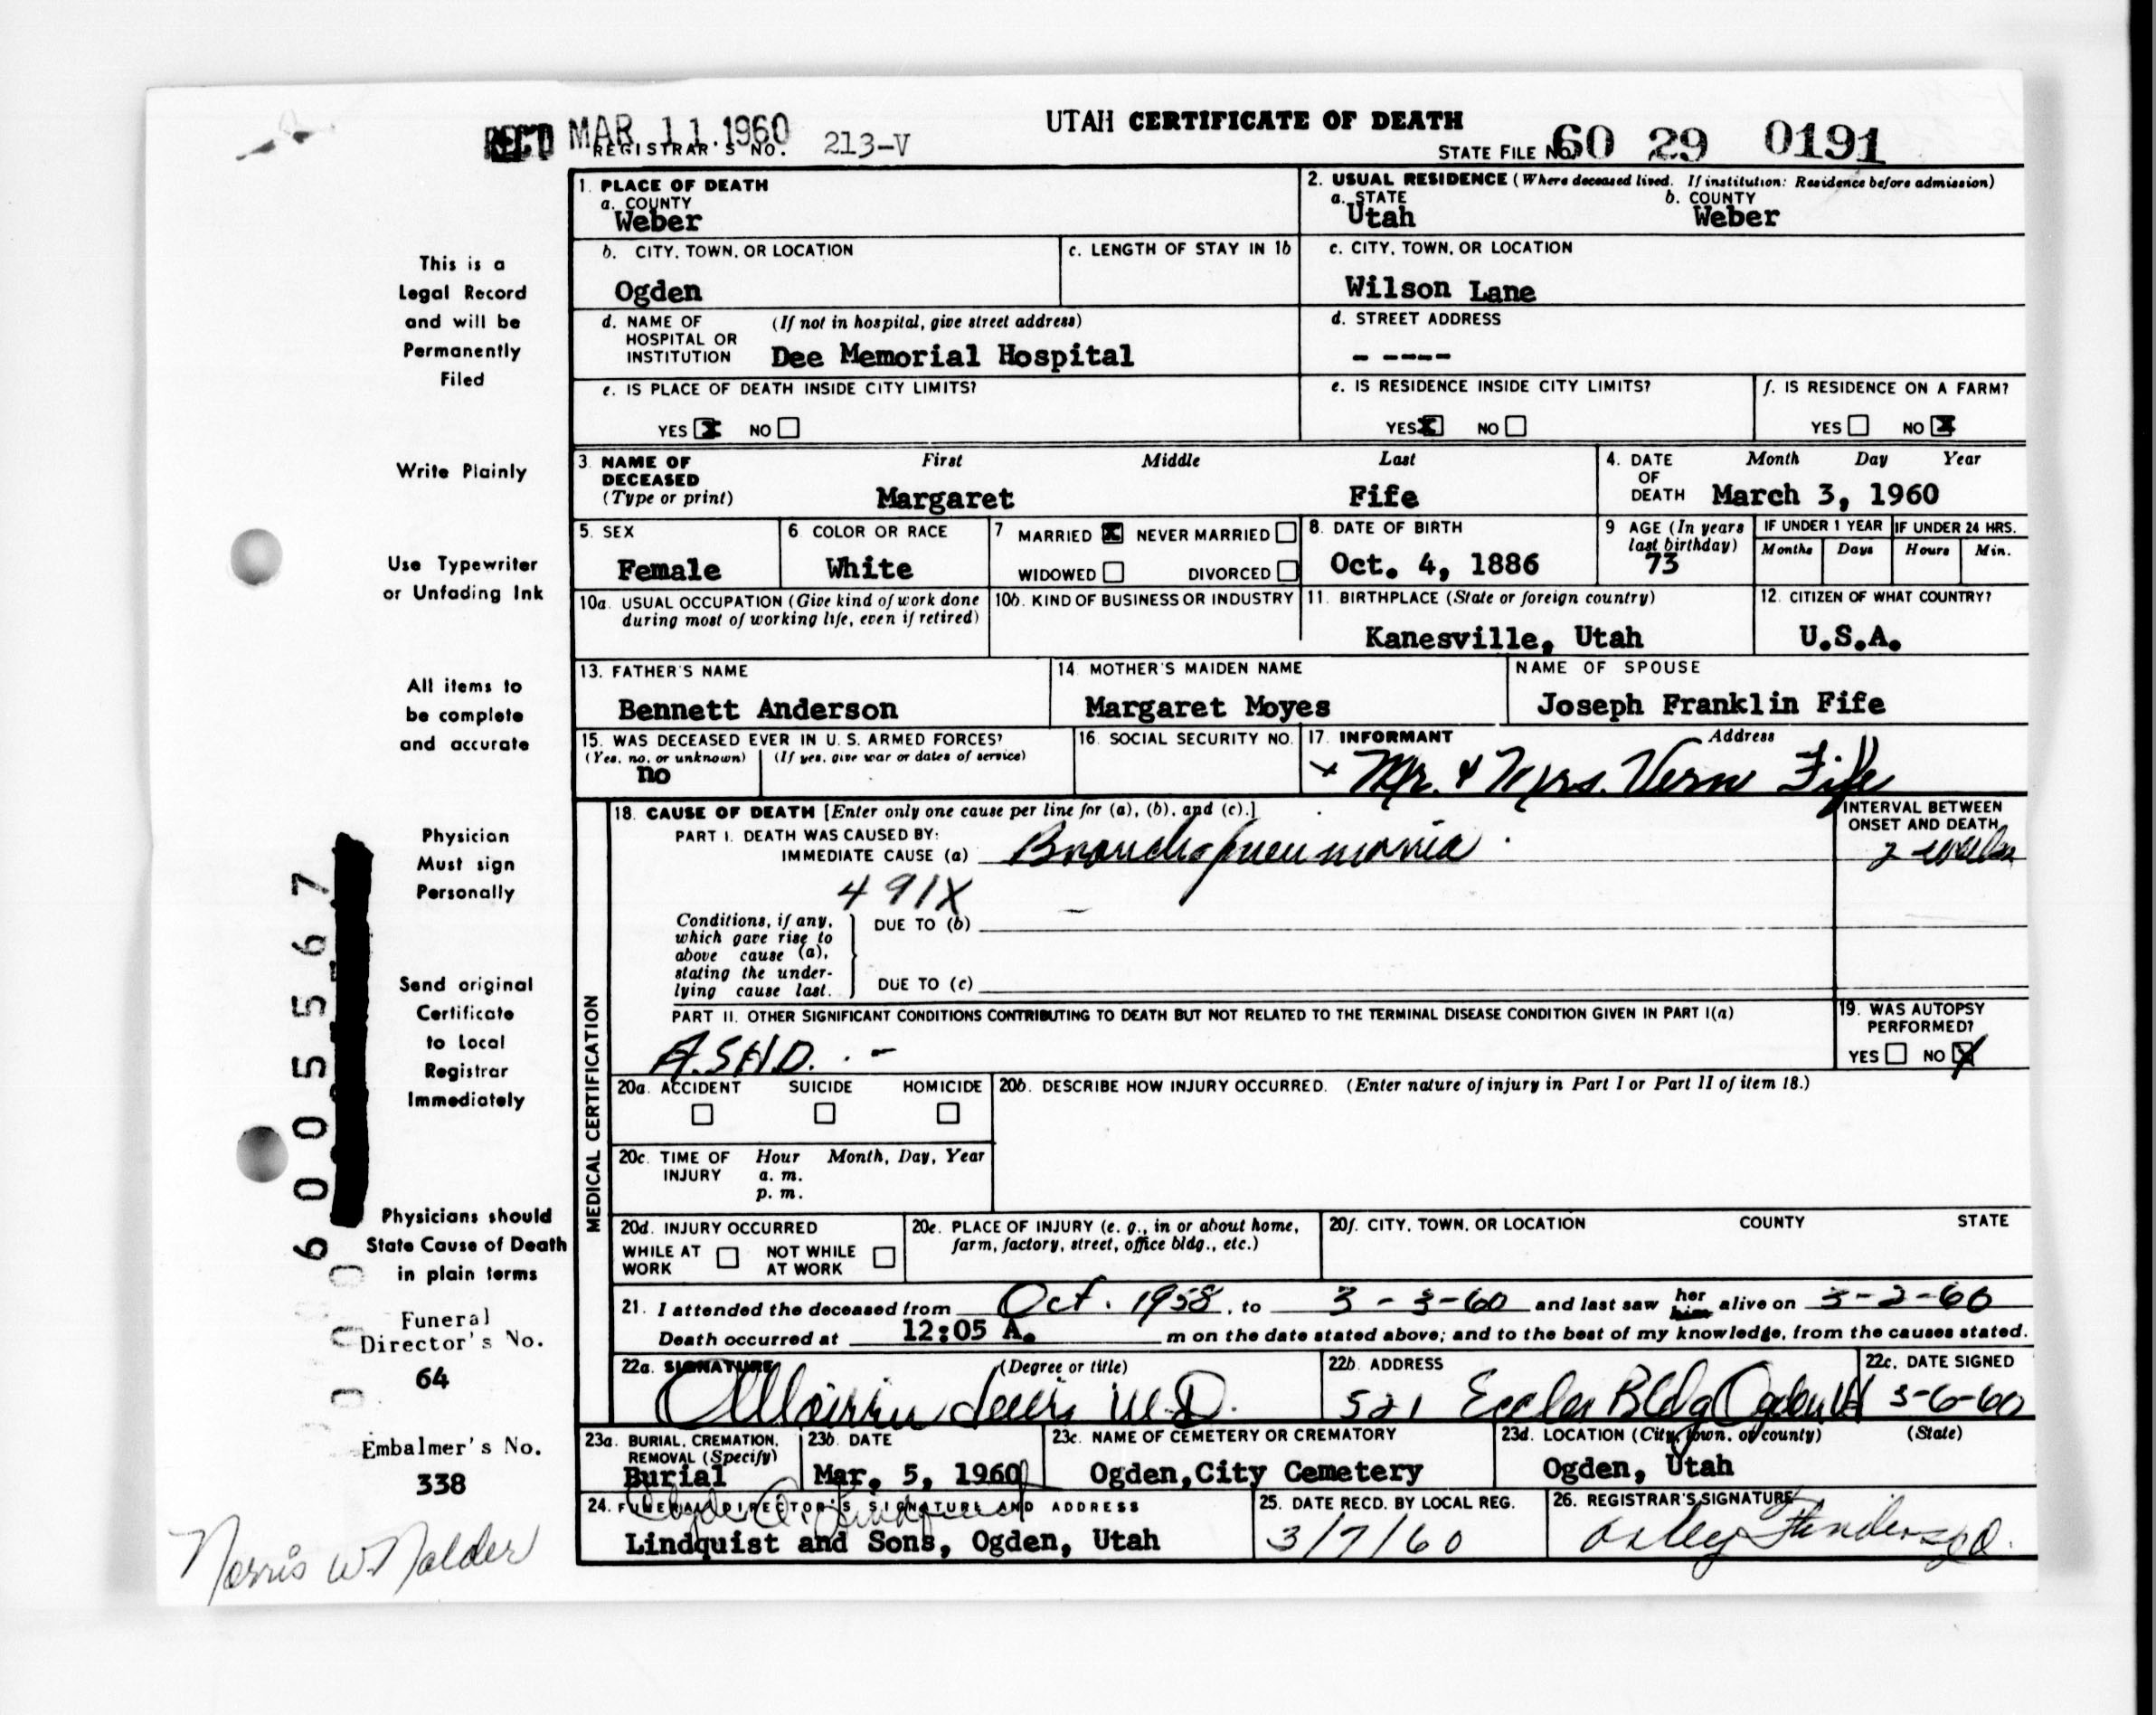 REC'D MAR 11 1960
REGISTRAR'S NO. 213-V
UTAH CERTIFICATE OF DEATH
STATE FILE NO. 60 29 0191
1. PLACE OF DEATH
a. COUNTY
Weber
2. USUAL RESIDENCE (Where deceased lived. If institution: Residence before admission)
a. STATE b. COUNTY
Utah Weber
b. CITY, TOWN, OR LOCATION
Ogden
c. LENGTH OF STAY IN 1b
c. CITY, TOWN, OR LOCATION
Wilson Lane
d. NAME OF HOSPITAL OR INSTITUTION (If not in hospital, give street address)
Dee Memorial Hospital
d. STREET ADDRESS
- ----
e. IS PLACE OF DEATH INSIDE CITY LIMITS?
YES X NO
e. IS RESIDENCE INSIDE CITY LIMITS?
YES X NO
f. IS RESIDENCE ON A FARM?
YES NO X
3. NAME OF DECEASED (Type or print) First Middle Last
Margaret Fife
4. DATE OF DEATH Month Day Year
March 3, 1960
5. SEX
Female
6 COLOR OR RACE
White
7 MARRIED X NEVER MARRIED
WIDOWED DIVORCED
8. DATE OF BIRTH
Oct. 4, 1886
9 AGE (In years last birthday)
73
IF UNDER 1 YEAR
Months Days
IF UNDER 24 HRS.
Hours Min.
10a. USUAL OCCUPATION (Give kind of work done during most of working life, even if retired)
10b. KIND OF BUSINESS OR INDUSTRY
11. BIRTHPLACE (State or foreign country)
Kanesville, Utah
12. CITIZEN OF WHAT COUNTRY?
U.S.A.
13. FATHER'S NAME
Bennett Anderson
14. MOTHER'S MAIDEN NAME
Margaret Moyes
NAME OF SPOUSE
Joseph Franklin Fife
15. WAS DECEASED EVER IN U. S. ARMED FORCES?
(Yes, no, or unknown) (If yes, give war or dates of service)
no
16. SOCIAL SECURITY NO.
17. INFORMANT Address
x Mr. & Mrs. Vern Fife
MEDICAL CERTIFICATION
18. CAUSE OF DEATH [Enter only one cause per line for (a), (b), and (c).]
PART I. DEATH WAS CAUSED BY:
IMMEDIATE CAUSE (a) Bronchopneumonia
INTERVAL BETWEEN ONSET AND DEATH
2 weeks
491X
Conditions, if any, which gave rise to above cause (a), stating the underlying cause last.
DUE TO (b)
DUE TO (c)
PART II. OTHER SIGNIFICANT CONDITIONS CONTRIBUTING TO DEATH BUT NOT RELATED TO THE TERMINAL DISEASE CONDITION GIVEN IN PART I(a)
A.S.H.D. . -
19. WAS AUTOPSY PERFORMED?
YES NO X
20a. ACCIDENT SUICIDE HOMICIDE
20b. DESCRIBE HOW INJURY OCCURRED. (Enter nature of injury in Part I or Part II of item 18.)
20c. TIME OF INJURY Hour Month, Day, Year
a. m.
p. m.
20d. INJURY OCCURRED
WHILE AT WORK NOT WHILE AT WORK
20e. PLACE OF INJURY (e. g., in or about home, farm, factory, street, office bldg., etc.)
20f. CITY, TOWN, OR LOCATION COUNTY STATE
21. I attended the deceased from Oct. 1958, to 3-3-60 and last saw her him alive on 3-2-60
Death occurred at 12:05 A. m on the date stated above; and to the best of my knowledge, from the causes stated.
22a. SIGNATURE (Degree or title)
M.D.
22b. ADDRESS
521 Eccles Bldg Ogden Ut
22c. DATE SIGNED
3-6-60
23a. BURIAL, CREMATION, REMOVAL (Specify)
Burial
23b. DATE
Mar. 5, 1960
23c. NAME OF CEMETERY OR CREMATORY
Ogden, City Cemetery
23d. LOCATION (City, town, or county) (State)
Ogden, Utah
24. FUNERAL DIRECTOR'S SIGNATURE AND ADDRESS
Lindquist and Sons, Ogden, Utah
25. DATE RECD. BY LOCAL REG.
3/7/60
26. REGISTRAR'S SIGNATURE
This is a
Legal Record
and will be
Permanently
Filed
Write Plainly
Use Typewriter
or Unfading Ink
All items to
be complete
and accurate
Physician
Must sign
Personally
Send original
Certificate
to Local
Registrar
Immediately
Physicians should
State Cause of Death
in plain terms
Funeral
Director's No.
64
Embalmer's No.
338
Norris W. Nalder
6005567